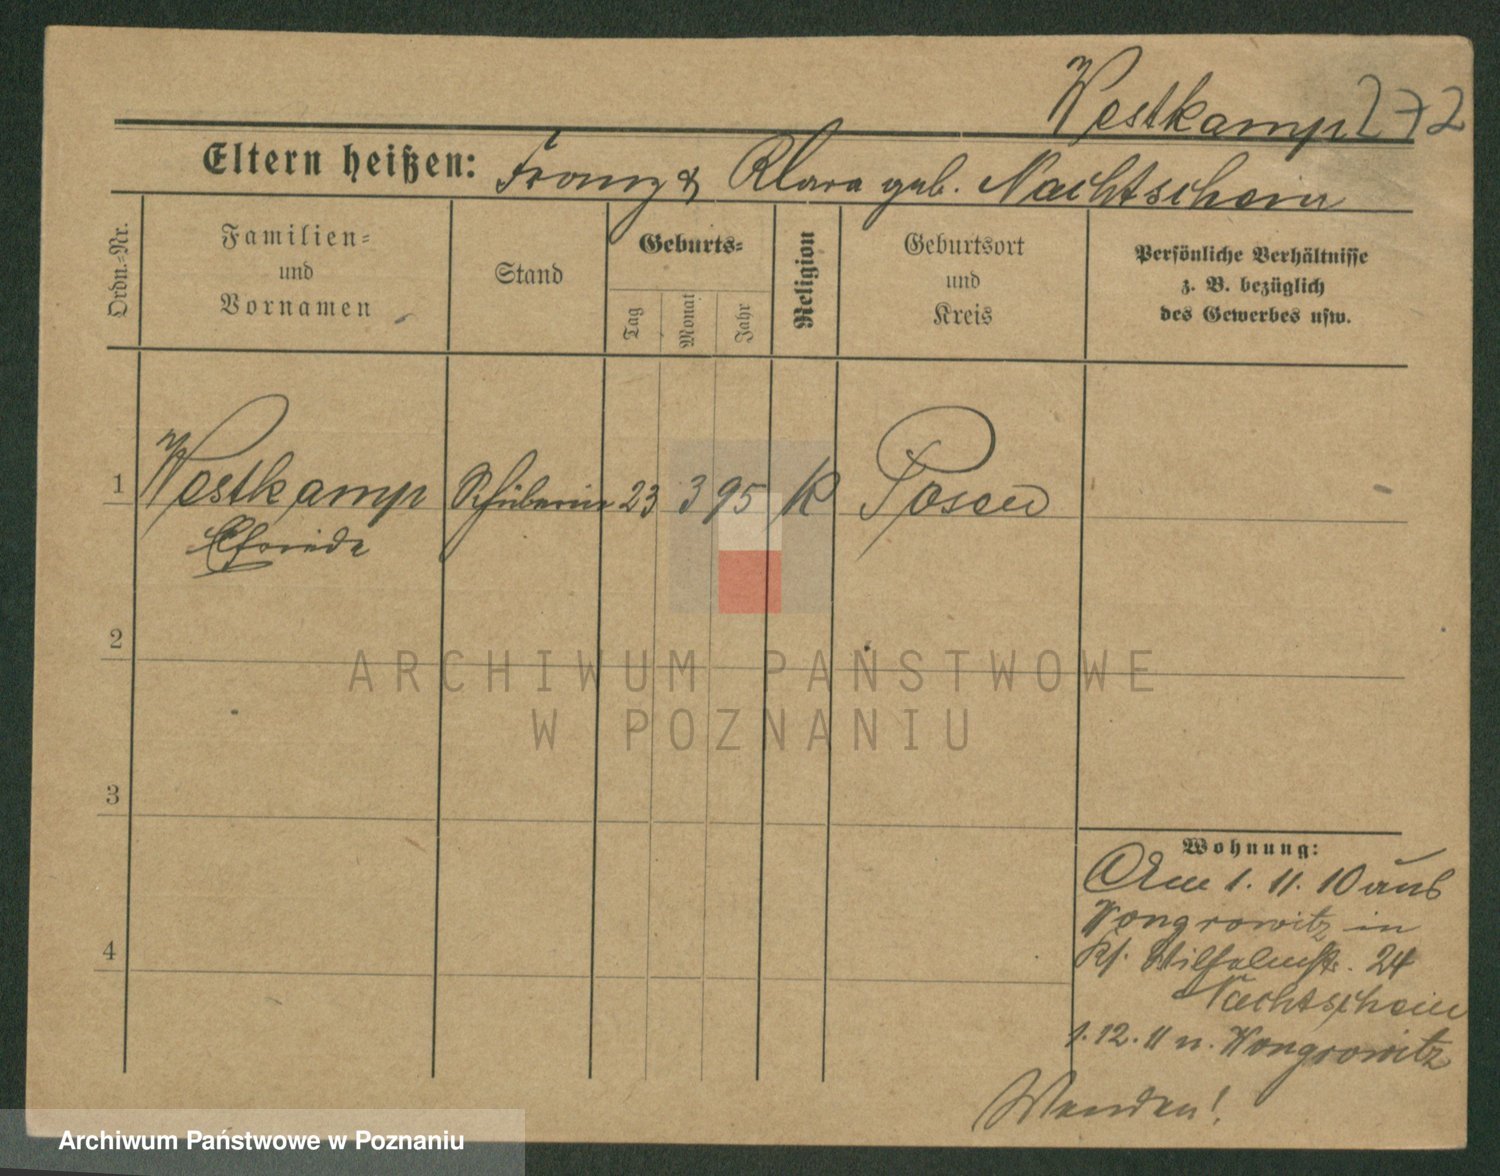 Westkamp 272
Eltern heißen: Franz & Klara geb. Nachtschein
Ordn.-Nr.
Familien-
und
Vornamen
Stand
Geburts-
Tag
Monat
Jahr
Religion
Geburtsort
und
Kreis
Persönliche Verhältnisse
z. B. bezüglich
des Gewerbes usw.
1 Westkamp Schülerin 23 3 95 K Posen
Elfriede
2
ARCHIWUM PAŃSTWOWE
W POZNANIU
3
Wohnung:
Am 1. 11. 10 aus
Wongrowitz in
Wilhelmstr. 24
Nachtschein
1. 12. 11 n. Wongrowitz
4
Wenden!
Archiwum Państwowe w Poznaniu